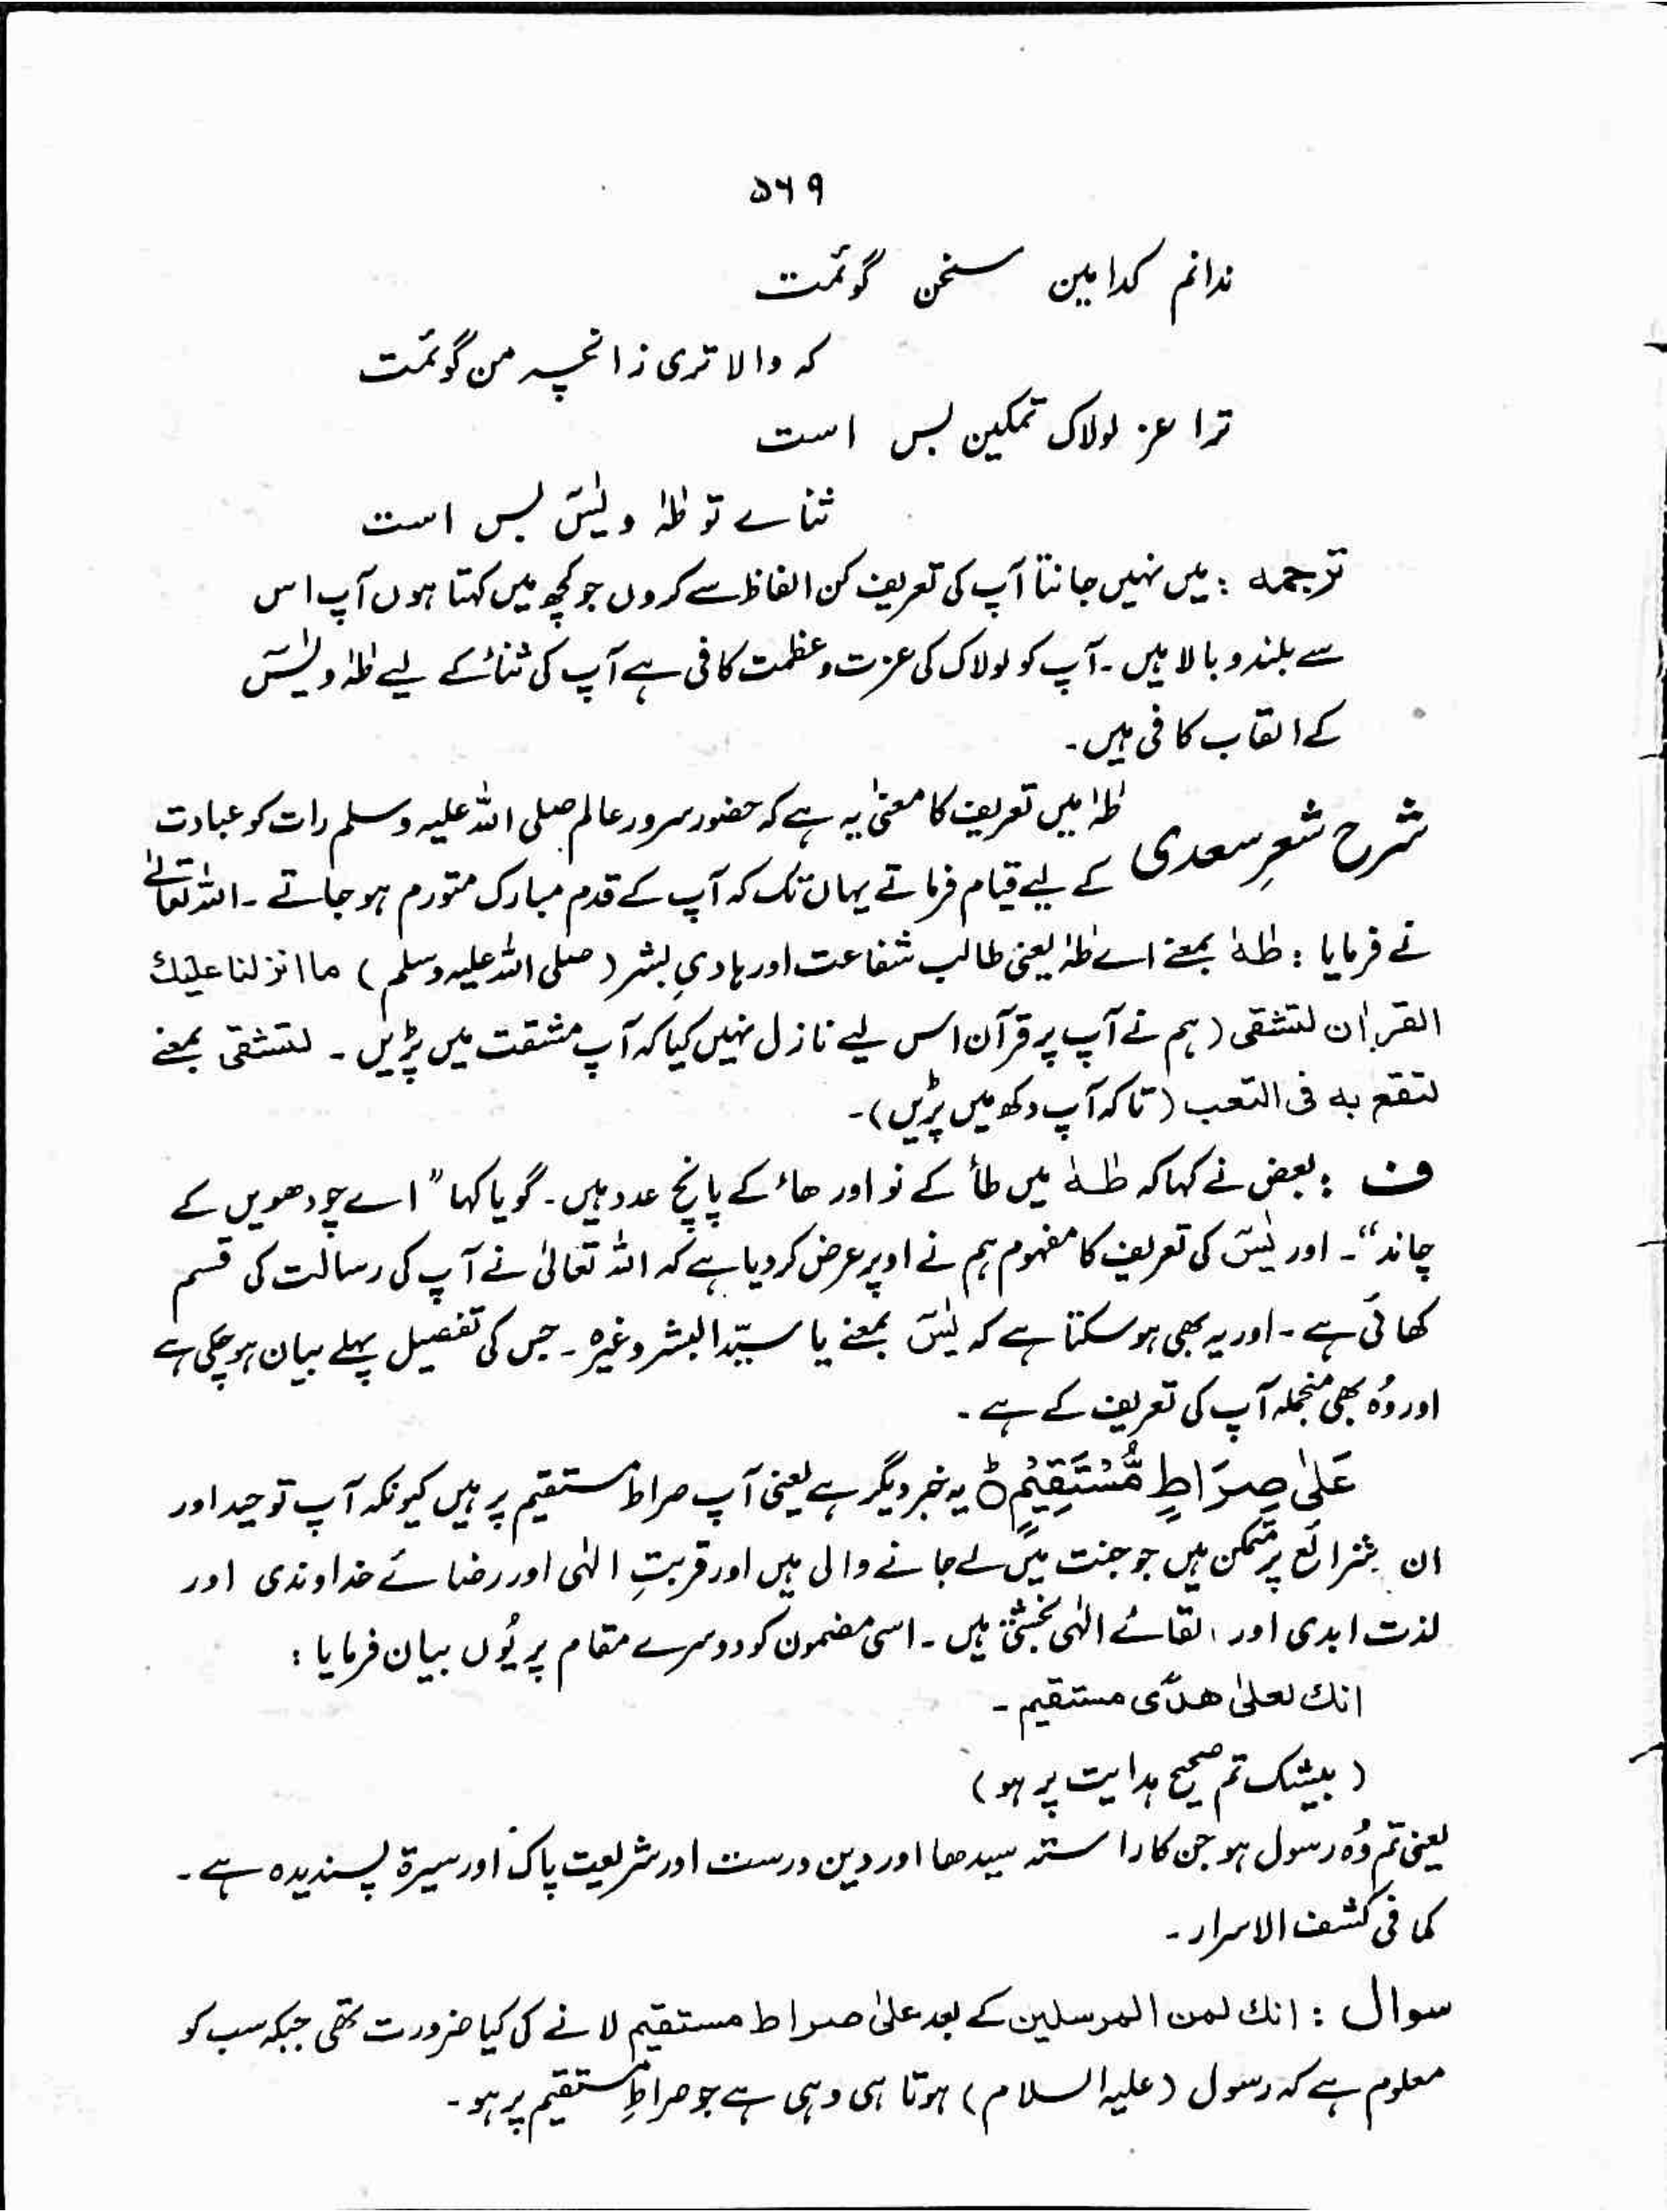 ۵۶۹
ندانم کدامین سخن گوئمت
کہ والا تری زانچہ من گوئمت
ترا عز لولاک تمکین بس است
ثنائے تو طٰہٰ و یٰسٓ بس است
ترجمہ : میں نہیں جانتا آپ کی تعریف کن الفاظ سے کروں جو کچھ میں کہتا ہوں آپ اس
سے بلند و بالا ہیں ۔ آپ کو لولاک کی عزت و عظمت کافی ہے آپ کی ثنائے کے لیے طٰہٰ و یٰسٓ
کے القاب کافی ہیں ۔
شرح شعرِ سعدی طٰہٰ میں تعریف کا معنیٰ یہ ہے کہ حضور سرور عالم صلی اللہ علیہ وسلم رات کو عبادت
کے لیے قیام فرماتے یہاں تک کہ آپ کے قدم مبارک متورم ہو جاتے ۔ اللہ تعالیٰ
نے فرمایا : طٰہٰ بمعنے اے طٰہٰ یعنی طالب شفاعت اور ہادیِ بشر ( صلی اللہ علیہ وسلم ) ما انزلنا علیك
القراٰن لتشقی ( ہم نے آپ پر قرآن اس لیے نازل نہیں کیا کہ آپ مشقت میں پڑیں ۔ لتشقی بمعنے
لتقع به فی التعب ( تاکہ آپ دکھ میں پڑیں ) ۔
ف : بعض نے کہا کہ طٰہٰ میں طأ کے نو اور ھاء کے پانچ عدد ہیں ۔ گویا کہا " اے چودھویں کے
چاند " ۔ اور یٰسٓ کی تعریف کا مفہوم ہم نے اوپر عرض کر دیا ہے کہ اللہ تعالیٰ نے آپ کی رسالت کی قسم
کھائی ہے ۔ اور یہ بھی ہو سکتا ہے کہ یٰسٓ بمعنے یا سیّد البشر وغیرہ ۔ جس کی تفصیل پہلے بیان ہو چکی ہے
اور وُہ بھی منجملہ آپ کی تعریف کے ہے ۔
عَلیٰ صِرَاطٍ مُّسْتَقِیْمٍ ۝ یہ خبر دیگر ہے یعنی آپ صراط مستقیم پر ہیں کیونکہ آپ توحید اور
ان شرائع پر متمکن ہیں جو جنت میں لے جانے والی ہیں اور قربتِ الٰہی اور رضائے خداوندی اور
لذت ابدی اور لقائے الٰہی بخشتی ہیں ۔ اسی مضمون کو دوسرے مقام پر یُوں بیان فرمایا :
انك لعلیٰ ھدًی مستقیم ۔
( بیشک تم صحیح ہدایت پر ہو )
یعنی تم وُہ رسول ہو جن کا راستہ سیدھا اور دین درست اور شریعت پاک اور سیرۃ پسندیدہ ہے ۔
کما فی کشف الاسرار ۔
سوال : انك لمن المرسلین کے بعد علیٰ صراط مستقیم لانے کی کیا ضرورت تھی جبکہ سب کو
معلوم ہے کہ رسول ( علیہ السلام ) ہوتا ہی وہی ہے جو صراطِ مستقیم پر ہو ۔